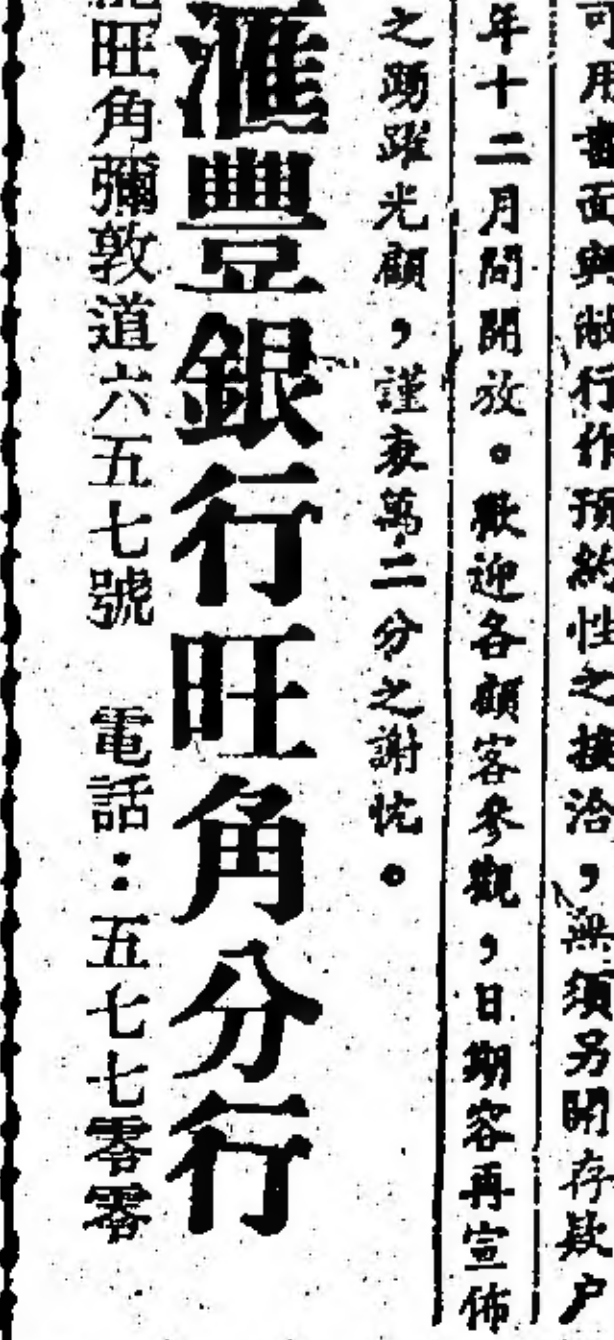 可用書面與敝行作預約性之接洽，無須另開存款户
年十二月間開放。歡迎各顧客參觀，日期容再宣佈
之踴躍光顧，謹表萬二分之謝忱。
滙豐銀行旺角分行
旺角彌敦道六五七號 電話：五七七零零